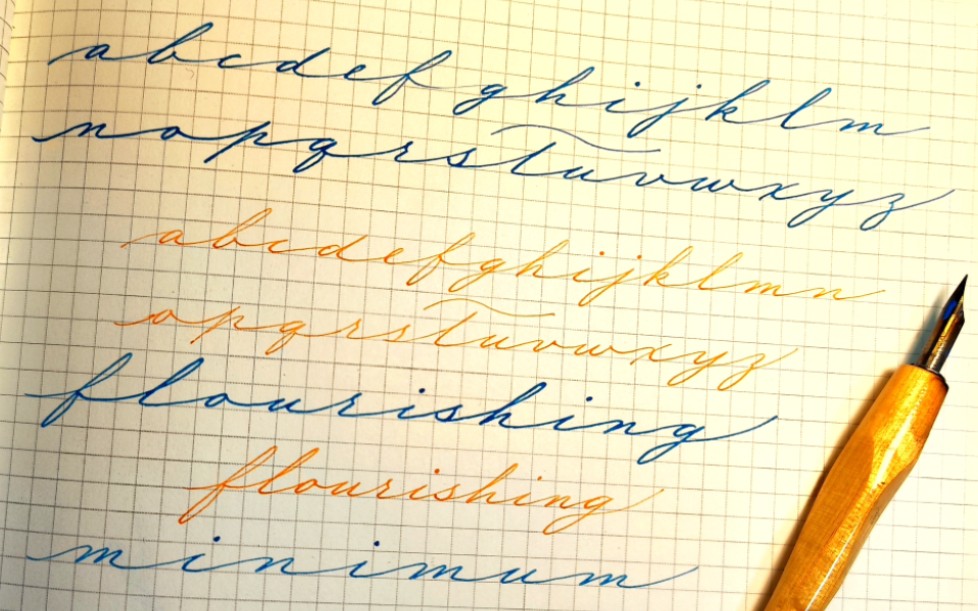 abcdefghijklm
nopqrstuvwxyz
abcdefghijklmn
opqrstuvwxyz
flourishing
flourishing
minimum